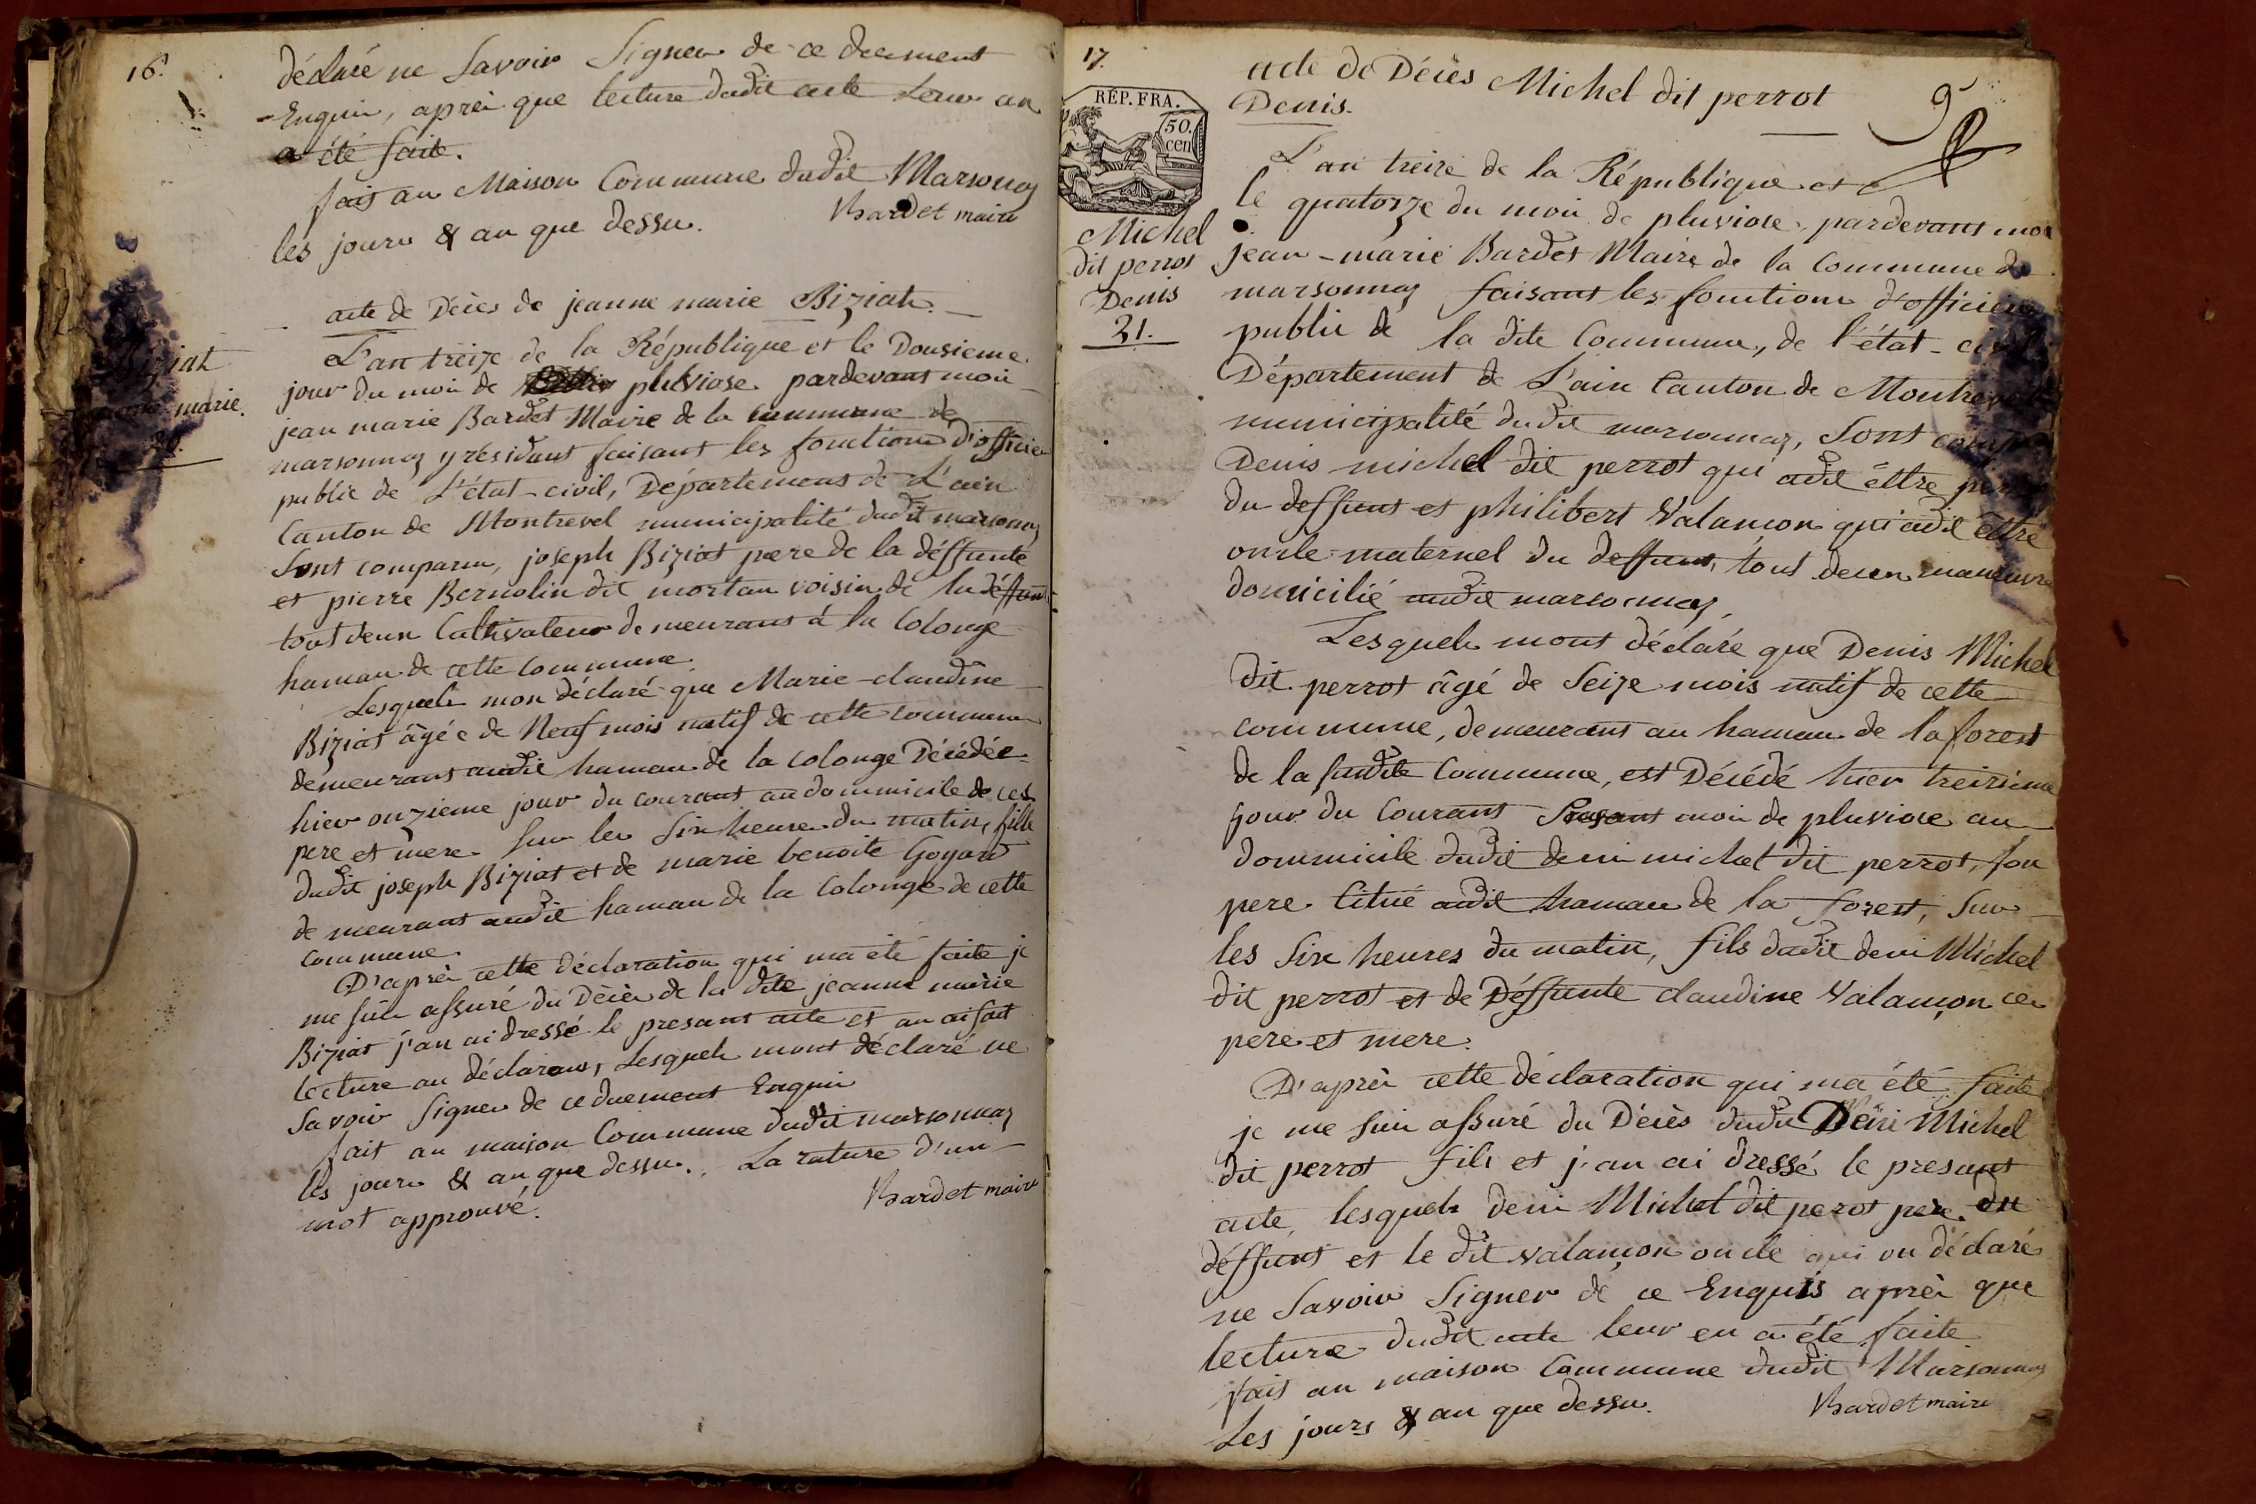 16.
déclaré ne Savoir Signer de ce duement
Enquis, après que lecture dudit acte Leur an
a été faite.
fait au Maison Commune dudit Marsonnaz
les jours & an que dessu.
Bardet maire
acte de Décès de jeanne marie Biziat.
L'an treize de la République et le Dousieme
jour du moi de pluviose pardevant moi
jean marie Bardet Maire de la commune de
marsonnaz y résidant faisant les fonctions d'officier
public de L'état-civil, Département de L'ain
Canton de Montrevel municipalité dudit marsonnaz
Sont comparu, joseph Biziat pere de la déffunte
et pierre Bernolin dit mortan voisin de la déffunte
tout deux Cultivateur demeurant à la Colonge
hamau de cette commune.
Lesquels mon déclaré que Marie-claudine
Biziat âgée de Neuf mois natif de cette commune
demeurant audit hamau de la colonge Décédée
hier onzieme jour du courant au dommicile de ces
pere et mere Sur les Six heure du matin, fille
dudit joseph Biziat et de marie benoite Goyard
demeurant audit hamau de la Colonge de cette
commune.
D'après cette déclaration qui ma été faite je
me suis assuré du Décès de la dite jeanne marie
Biziat j'an ai dressé le presant acte et an ai fait
lecture au déclarans, Lesquels mont déclaré ne
Savoir Signer de ce duement Enquis
fait au maison Commune dudit marsonnaz
les jours & an que dessu. La rature d'un
mot approuvé.
Bardet maire
iziat
marie.
17.
RÉP. FRA.
50.
cen
Michel
dit perrot
Denis
21.
acte de Décès Michel dit perrot
Denis.
9
L'an treize de la République et
le quatorze du moi de pluviose, pardevant moi
jean-marie Bardet Maire de la Commune de
marsonnaz faisant les fonctions d'officier
public de la dite Commune, de l'état-civil
Département de L'ain Canton de Montrevel
municipalité dudit marsonnaz, Sont
Denis michel dit perrot qui adit êttre pere
du deffunt et philibert Valançon qui adit êttre
oncle maternel du deffunt, tout deux manœuvre
domicilié audit marsonnaz,
Lesquels mont déclaré que Denis Michel
dit perrot âgé de Seize mois natif de cette
commune, demeurant au hamau de la forest
de la susdite Commune, est Décédé hier treizieme
jour du Courant Presant moi de pluviose au
dommicile dudit deni michel dit perrot, son
pere Citué audit hamau de la forest, Sur
les Six heures du matin, fils dudit deni Michel
dit perrot et de Déffunte claudine Valançon ces
pere et mere.
D'après cette déclaration qui ma été faite
je me suis assuré du Décès dudit Deni Michel
dit perrot fils et j'an ai dressé le presant
acte, lesquels deni Michel dit perot pere du
déffunt et le dit valançon oncle qui on déclaré
ne Savoir Signer de ce Enquis après que
lecture dudit acte leur en a été faite
fait an maison Commune dudit Marsonnaz
Les jours & an que dessu.
Bardet maire